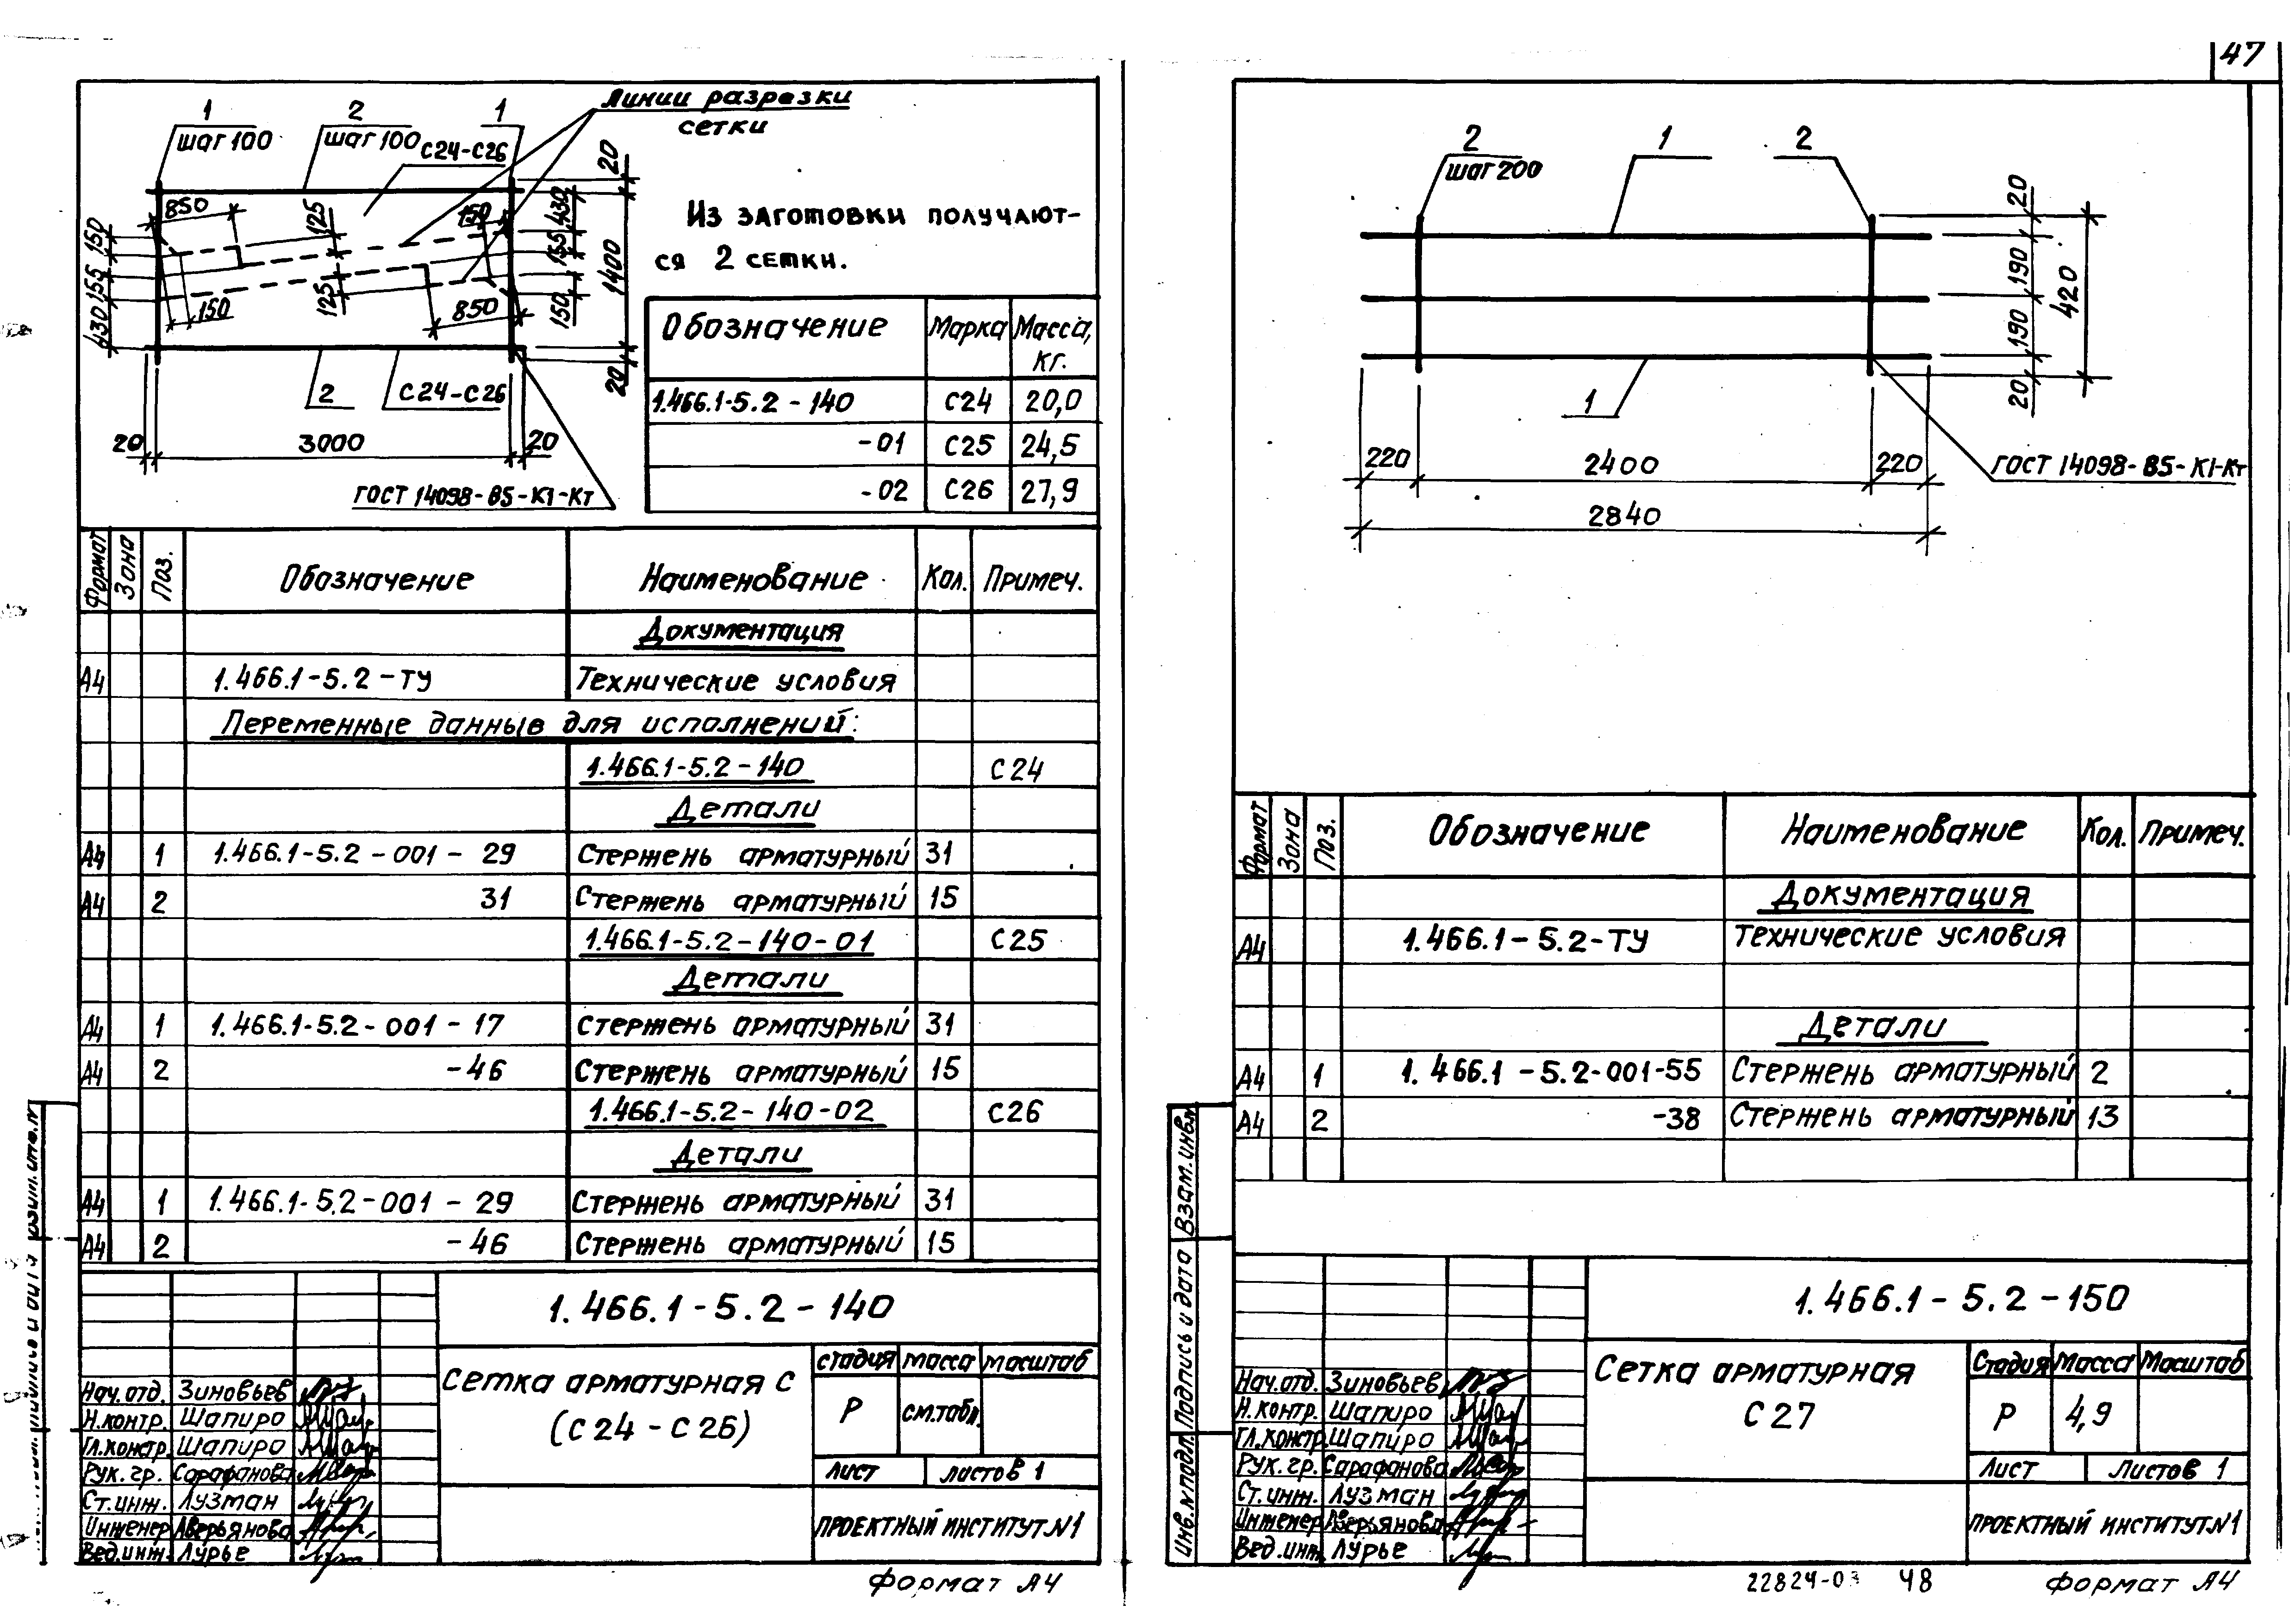 47
1
2
1
шаг 100
шаг 100
Линии разрезки
сетки
С24-С26
850
125
150
430
20
150
155
430
155
1400
150
125
850
150
20
2
С24-С26
20
3000
20
ГОСТ 14098-85-К1-Кт
Из заготовки получают-
ся 2 сетки.
Обозначение Марка Масса, кг.
1.466.1-5.2-140 С24 20,0
-01 С25 24,5
-02 С26 27,9
Формат Зона Поз. Обозначение Наименование Кол. Примеч.
Документация
А4 1.466.1-5.2-ТУ Технические условия
Переменные данные для исполнений:
1.466.1-5.2-140 С24
Детали
А4 1 1.466.1-5.2-001-29 Стержень арматурный 31
А4 2 31 Стержень арматурный 15
1.466.1-5.2-140-01 С25
Детали
А4 1 1.466.1-5.2-001-17 Стержень арматурный 31
А4 2 -46 Стержень арматурный 15
1.466.1-5.2-140-02 С26
Детали
А4 1 1.466.1-5.2-001-29 Стержень арматурный 31
А4 2 -46 Стержень арматурный 15
1.466.1-5.2-140
Сетка арматурная С
(С24-С26)
стадия масса масштаб
Р см.табл.
лист листов 1
ПРОЕКТНЫЙ ИНСТИТУТ N1
Нач.отд. Зиновьев
Н.контр. Шапиро
Гл.констр. Шапиро
Рук.гр. Сарафанова
Ст.инж. Лузман
Инженер Аверьянова
Вед.инж. Лурье
Формат А4
2
шаг 200
1
2
20
190
190
20
420
1
220
2400
220
2840
ГОСТ 14098-85-К1-Кт
Формат Зона Поз. Обозначение Наименование Кол. Примеч.
Документация
А4 1.466.1-5.2-ТУ Технические условия
Детали
А4 1 1.466.1-5.2-001-55 Стержень арматурный 2
А4 2 -38 Стержень арматурный 13
Инв.N подл. Подпись и дата Взам.инв.N
1.466.1-5.2-150
Сетка арматурная
С27
Стадия Масса Масштаб
Р 4,9
Лист Листов 1
ПРОЕКТНЫЙ ИНСТИТУТ N1
Нач.отд. Зиновьев
Н.контр. Шапиро
Гл.констр. Шапиро
Рук.гр. Сарафанова
Ст.инж. Лузман
Инженер Аверьянова
Вед.инж. Лурье
22824-03 48 Формат А4